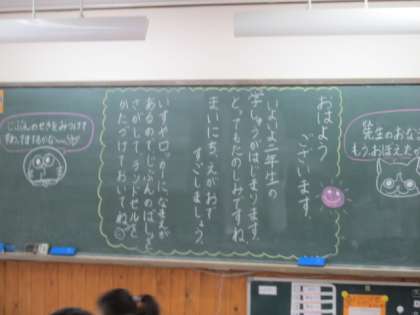 おはよう
ございます。
いよいよ二年生の
学しゅうがはじまります。
とってもたのしみですね。
まいにちえがおで
すごしましょう。
いすやロッカーになまえが
あるので、じぶんのばしょを
さがして、ランドセルを
かたづけておいてね。
じぶんのせきをみつけて
すわってまてるかな〜
先生のおな
もうおぼえたか